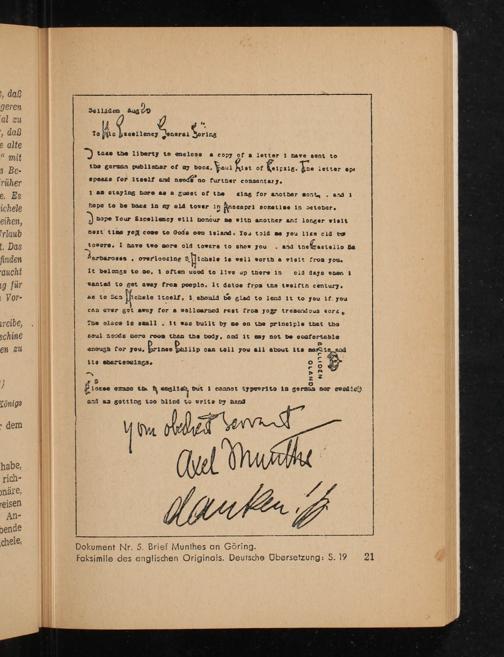 Solliden Aug 20
To His Excellency General Göring
I take the liberty to enclose a copy of a letter i have sent to
the german publisher of my book, Paul List of Leipzig. The letter
speaks for itself and needs no further commentary.
i am staying here as a guest of the king for another . and i
hope to be back in my old tower in Anacapri sometime in october.
I hope Your Excellency will honour me with another and longer visit
next time you come to Gods own island. You told me you like old
towers. I have two more old towers to show you . and the Castello
Barbarossa . overlooking S Michele is well worth a visit from you.
It belongs to me. i often used to live up there in old days when i
wanted to get away from people. It dates from the twelfth century.
As to San Michele itself, i should be glad to lend it to you if you
can ever get away for a wellearned rest from your tremendous work.
The place is small . it was built by me on the principle that the
soul needs more room than the body, and it may not be comfortable
enough for you. Prince Philip can tell you all about its merits and
its shortcomings.
Please excuse the english but i cannot typewrite in german nor swedish
and am getting too blind to write by hand
SOLLIDEN
ÖLAND
your obedient servant
Axel Munthe
danken!
Dokument Nr. 5. Brief Munthes an Göring.
Faksimile des englischen Originals. Deutsche Übersetzung: S. 19 21
, daß
geren
al zu
, daß
e alte
" mit
s Be-
rüher
e. Es
ichele
eihen,
Urlaub
t. Das
finden
raucht
ng für
Vor-
reibe,
schine
en zu
Königs
dem
habe,
rich-
onäre,
weisen
An-
bende
chele,